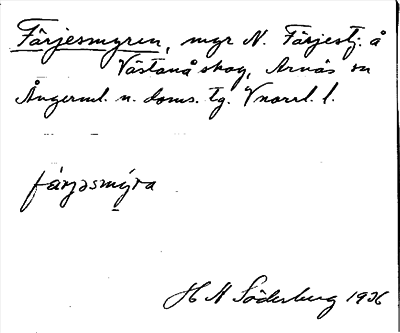 Färjesmyren, myr N. Färjestj. å
Västanå skog, Arnäs sn
Ångerml. n. doms. tg. Vnorrl. l.
färjəsmýra
H N Söderberg 1936